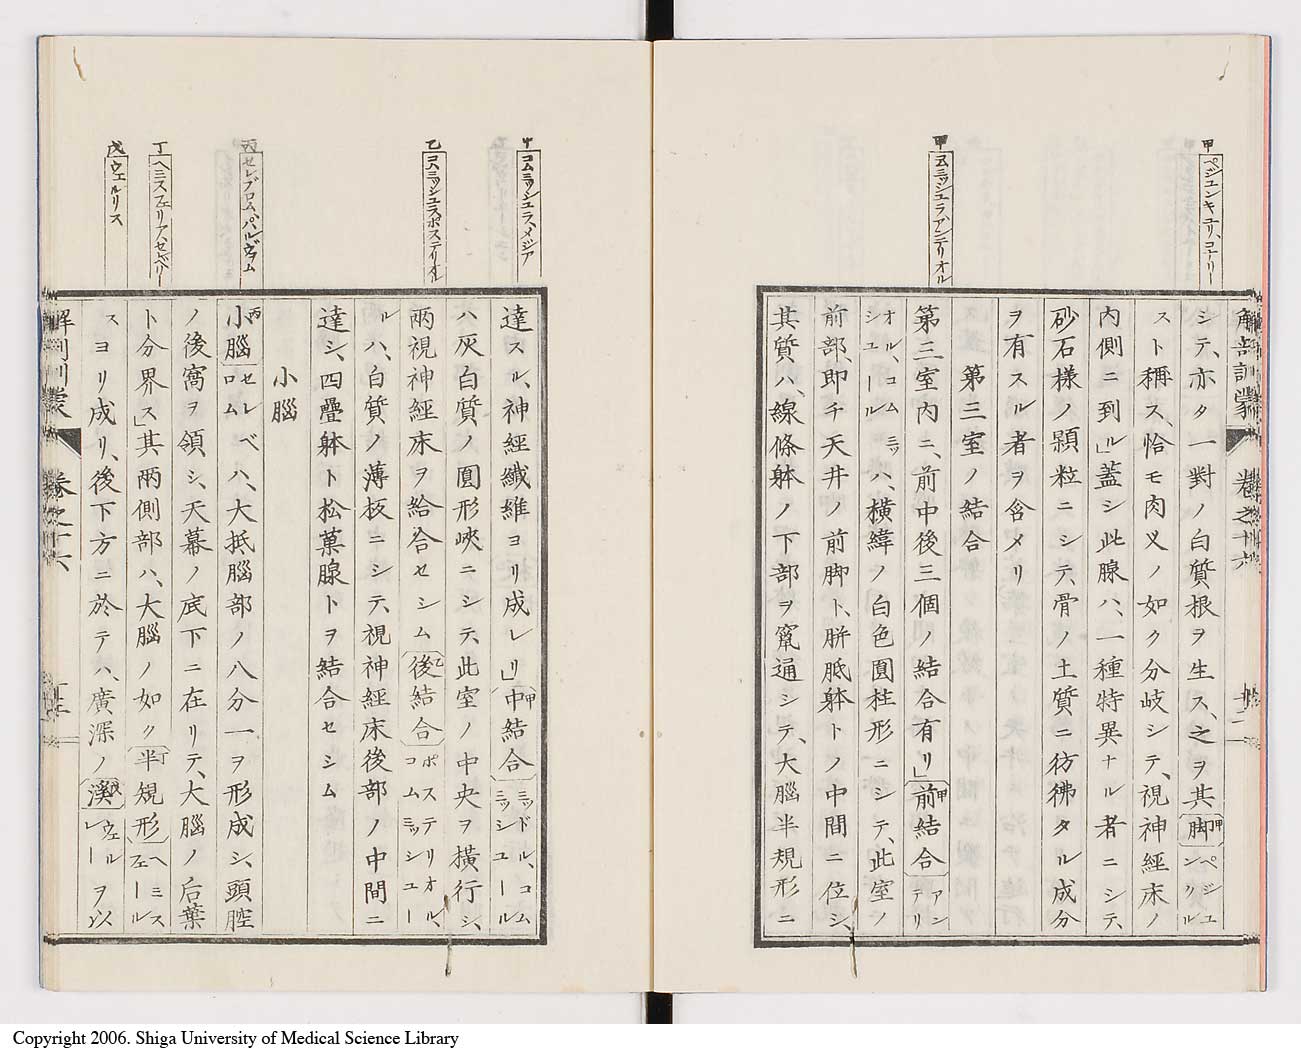 甲
ペジュンキュリ、コナーリー
甲
コムミッシュラアンテリオル
解剖訓蒙
卷之十六
シテ、亦タ一對ノ白質根ヲ生ス、之ヲ其脚甲ペジュンクル
スト稱ス、恰モ肉叉ノ如ク分岐シテ、視神經床ノ
内側ニ到ル」蓋シ此腺ハ、一種特異ナル者ニシテ、
砂石樣ノ顆粒ニシテ、骨ノ土質ニ彷彿タル成分
ヲ有スル者ヲ含メリ
第三室ノ結合
第三室内ニ、前中後三個ノ結合有リ」前結合甲アンテリ
オル、コムミッシユールハ、橫緯ノ白色圓柱形ニシテ、此室ノ
前部、即チ天井ノ前脚ト、胼胝躰トノ中間ニ位シ、
其質ハ、線條躰ノ下部ヲ竄通シテ、大腦半規形ニ
甲
コムミッシュラ、メジア
乙
コムミッシュラ、ポステリオル
丙
セレブロム、パルヴァム
丁
ヘミスフェリア、セレベリー
戊
ウェルリス
達スル、神經纖維ヨリ成レリ」中結合甲ミッドル、コムミッシユール
ハ灰白質ノ圓形峽ニシテ、此室ノ中央ヲ橫行シ、
兩視神經床ヲ給合セシム後結合乙ポステリオル、コムミッシユー
ルハ、白質ノ薄板ニシテ、視神經床後部ノ中間ニ
達シ、四疊躰ト松菓腺トヲ結合セシム
小腦
小腦丙セレベロムハ、大抵腦部ノ八分一ヲ形成シ、頭腔
ノ後窩ヲ領シ、天幕ノ底下ニ在リテ、大腦ノ后葉
ト分界ス」其兩側部ハ、大腦ノ如ク半規形丁ヘミスフェール
スヨリ成リ、後下方ニ於テハ、廣深ノ溪戊ウェルレーヲ以
解剖訓蒙
卷之十六
Copyright 2006. Shiga University of Medical Science Library